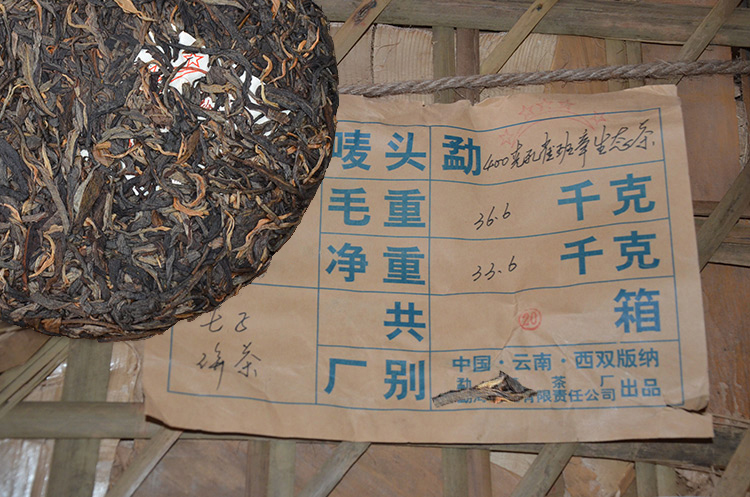 唛头 勐400克孔雀班章生态茶
毛重 36.6 千克
净重 33.6 千克
共 20 箱
七子
饼茶
厂别 中国·云南·西双版纳
勐 茶厂
有限责任公司 出品